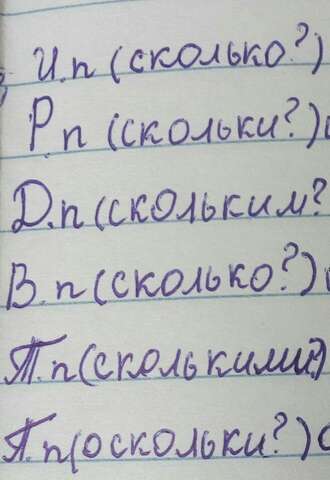 И.п (сколько?)
Р.п (скольки?)
Д.п (скольким?
В.п (сколько?)
Т.п (сколькими?)
П.п (оскольки?)